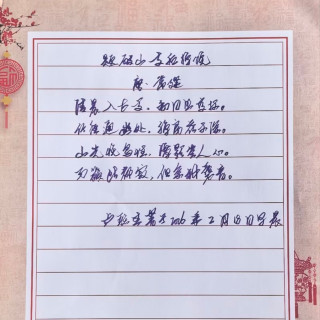 题破山寺后禅院
唐·常建
清晨入古寺，初日照高林。
竹径通幽处，禅房花木深。
山光悦鸟性，潭影空人心。
万籁此都寂，但余钟磬音。
年2月 日